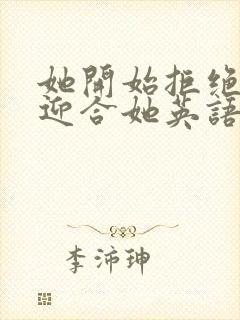 她開始拒绝
迎合她英語
李沛珅